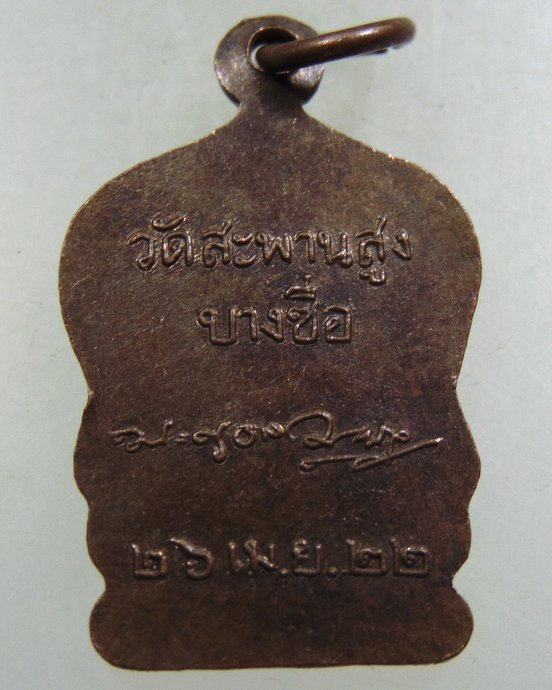 วัดสะพานสูง
บางซื่อ
๒๖ เม.ย. ๒๒